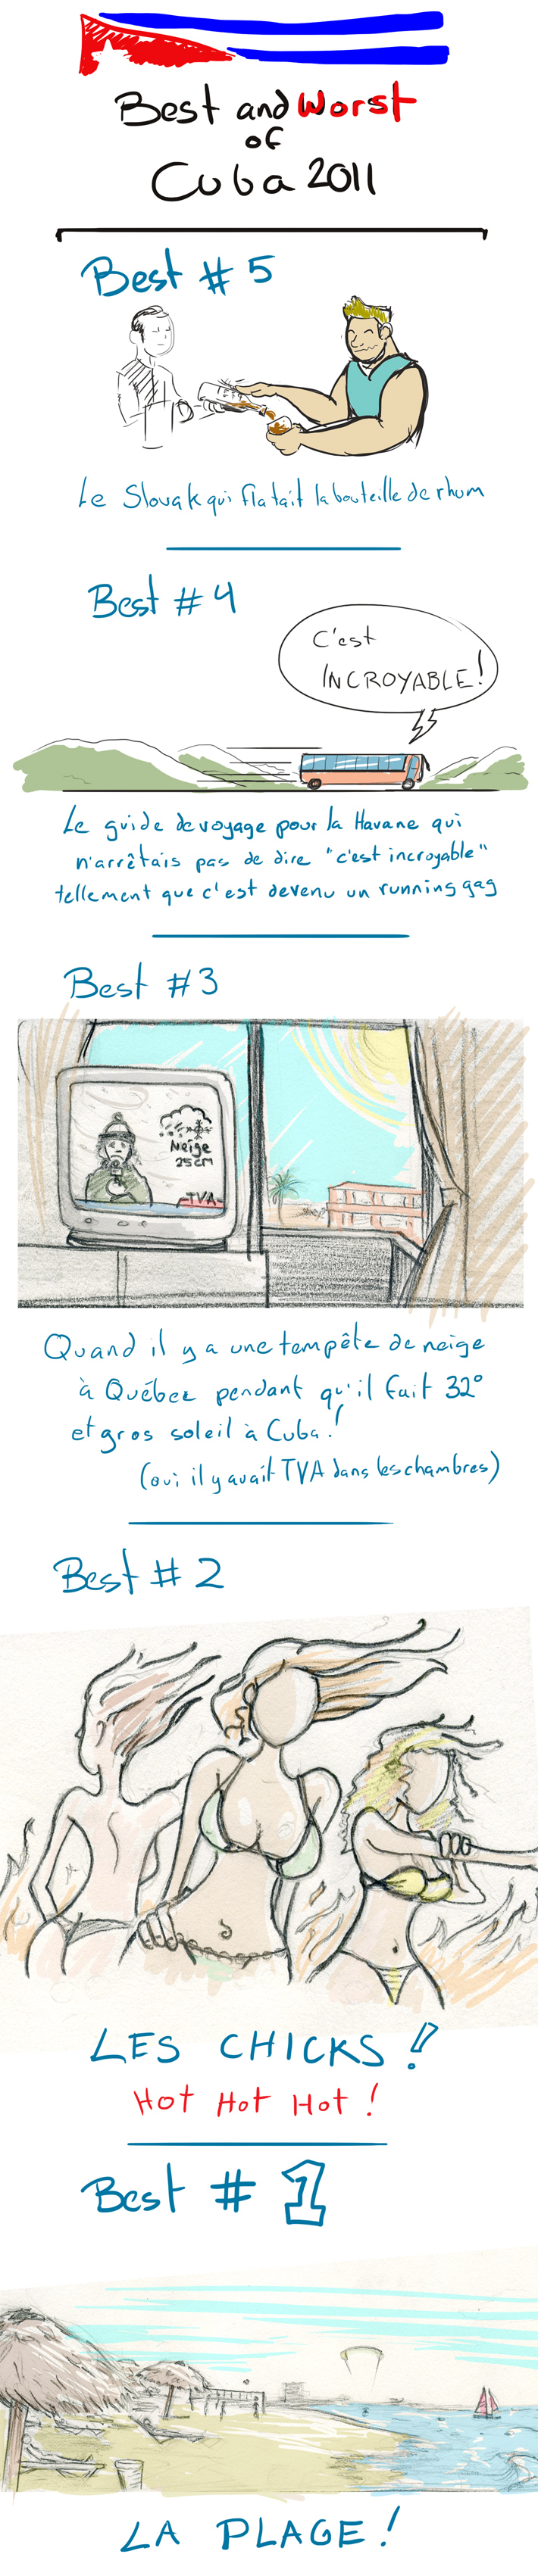 Best and Worst
of
Cuba 2011
Best # 5
Le Slovak qui flatait la bouteille de rhum
Best # 4
C'est
INCROYABLE!
Le guide de voyage pour la Havane qui
n'arrêtais pas de dire "c'est incroyable"
tellement que c'est devenu un running gag
Best # 3
Neige
25 cm
TVA
Quand il y a une tempête de neige
à Québec pendant qu'il fait 32°
et gros soleil à Cuba!
(oui il y avait TVA dans les chambres)
Best # 2
LES CHICKS!
Hot Hot Hot!
Best # 1
LA PLAGE!